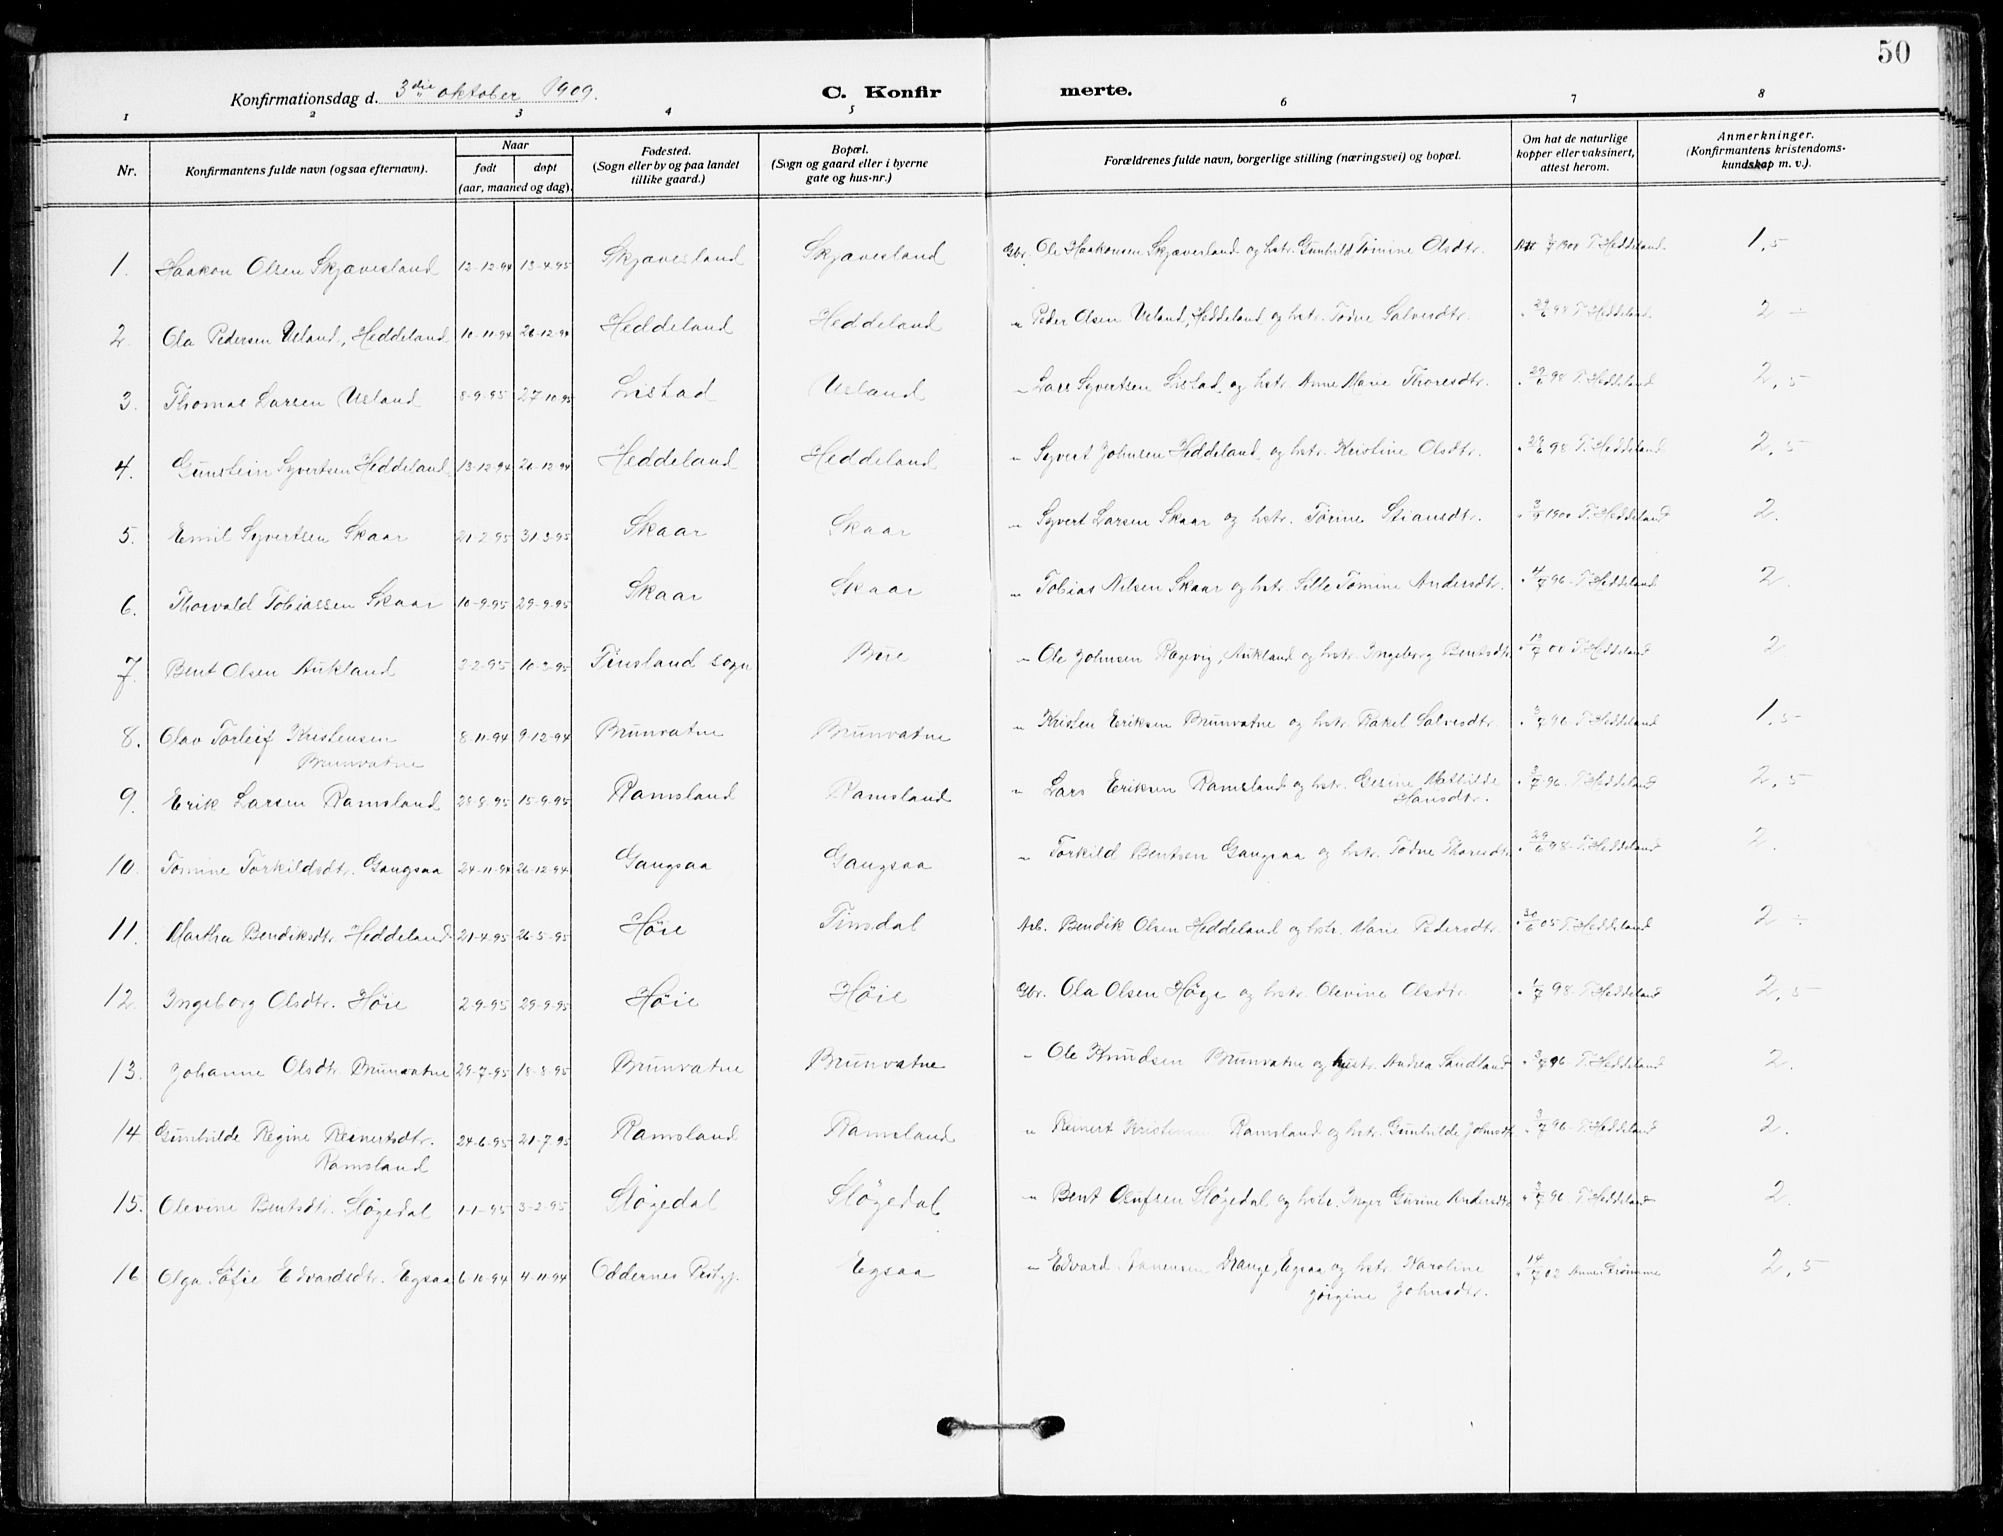 50
Konfirmationsdag d. 3die oktober 1909. C. Konfir merte.
1 2 3 4 5 6 7 8
Nr. Konfirmantens fulde navn (ogsaa efternavn). Naar født døpt (aar, maaned og dag). Fødested. (Sogn eller by og paa landet tillike gaard.) Bopæl. (Sogn og gaard eller i byerne gate og hus-nr.) Forældrenes fulde navn, borgerlige stilling (næringsvei) og bopæl. Om hat de naturlige kopper eller vaksinert, attest herom. Anmerkninger. (Konfirmantens kristendoms-kundskap m. v.).
1. Haakon Olsen Skjævesland 12-12-94 13-4-95 Skjævesland Skjævesland Gbr. Ole Haakonsen Skjævesland og hstr. Gunhild Tomine Olsdtr. 1901 T. Heddeland 1,5
2. Ola Pedersen Usland, Heddeland 10-11-94 26-12-94 Heddeland Heddeland " Peder Olsen Usland, Heddeland og hstr. Todne Salvesdtr. " 29/6 98 T. Heddeland 2 ÷
3. Thomas Larsen Usland 8-9-95 27-10-95 Livstad Usland " Lars Syvertsen Livstad og hstr. Anne Marie Thoresdtr. " 29/6 98 T. Heddeland 2,5
4. Gunstein Syvertsen Heddeland 13-12-94 26-12-94 Heddeland Heddeland " Syvert Johnsen Heddeland og hstr. Kristine Olsdtr. " 29/6 98 T. Heddeland 2,5
5. Emil Syvertsen Skaar 21-2-95 31-3-95 Skaar Skaar " Syvert Larsen Skaar og hstr. Torine Stiansdtr. " 1900 T. Heddeland 2.
6. Thorvald Tobiassen Skaar 10-9-95 29-9-95 Skaar Skaar " Tobias Nilsen Skaar og hstr. Sille Tomine Andersdtr. " 4/7 96 T. Heddeland 2.
7. Bent Olsen Aukland 3-2-95 10-3-95 Finsland sogn Bue " Ole Johnsen Røgevig, Aukland og hstr. Ingeborg Bentsdtr. " 00 T. Heddeland 2
8. Olav Torleif Kristensen 8-11-94 9-12-94 Brunvatne Brunvatne " Kristen Eriksen Brunvatne og hstr. Rakel Salvesdtr. " 3/7 96 T. Heddeland 1,5
Brunvatne
9. Erik Larsen Ramsland 28-8-95 15-9-95 Ramsland Ramsland " Lars Eriksen Ramsland og hstr. Gesine Mathilde " 3/7 96 T. Heddeland 2,5
Hansdtr.
10. Tomine Torkildsdtr. Gangsaa 24-11-94 26-12-94 Gangsaa Gangsaa " Torkild Bentsen Gangsaa og hstr. Todne Thoresdtr. " 29/6 98 T. Heddeland 2.
11. Martha Bendiksdtr. Heddeland 21-4-95 26-5-95 Høie Finsdal Arb. Bendik Olsen Heddeland og hstr. Marie Pedersdtr. " 30/6 05 T. Heddeland 2 ÷
12. Ingeborg Olsdtr. Høie 2-9-95 29-9-95 Høie Høie Gbr. Ola Olsen Høye og hstr. Olevine Olsdtr. " 1/7 98 T. Heddeland 2,5
13. Johanne Olsdtr. Brunvatne 29-7-95 18-8-95 Brunvatne Brunvatne " Ole Knudsen Brunvatne og hustr. Andrea Sandland " 3/7 96 T. Heddeland 2.
14. Gunhilde Regine Reinertsdtr. 24-6-95 21-7-95 Ramsland Ramsland " Reinert Kristensen Ramsland og hstr. Gunhilde Johnsdtr. " 3/7 96 T. Heddeland 2.
Ramsland
15. Olevine Bentsdtr. Sløgedal 1-1-95 3-2-95 Sløgedal Sløgedal " Bent Olufsen Sløgedal og hstr. Inger Gurine Andersdtr. " 3/7 96 T. Heddeland 2.
16 Olga Sofie Edvardsdtr. Egsaa 6-11-94 4-11-94 Oddernes Prstgj. Egsaa " Edvard Aanensen Drange, Egsaa og hstr. Karoline " 14/7 02 Anne Strømme 2,5
Jørgine Johnsdtr.